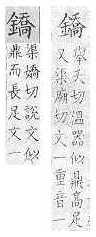 鐈
舉夭切溫器似鼎高足
又渠廟切文一重音一
鐈
渠嬌切說文似
鼎而長足文